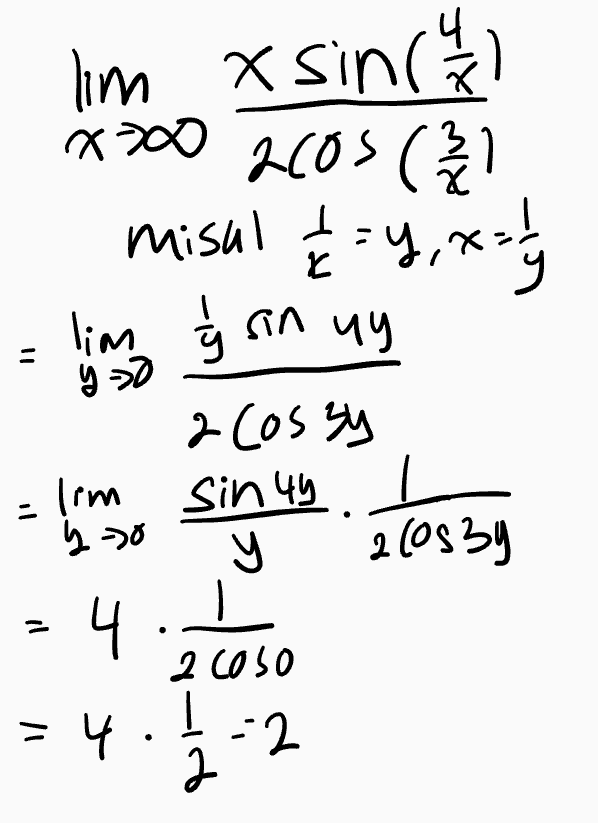 lim x→∞ x sin(4/x) / 2cos(3/x)
misal 1/x = y, x = 1/y
= lim y→0 1/y sin 4y / 2 cos 3y
= lim y→0 sin 4y / y · 1 / 2cos3y
= 4 · 1 / 2 cos0
= 4 · 1/2 = 2